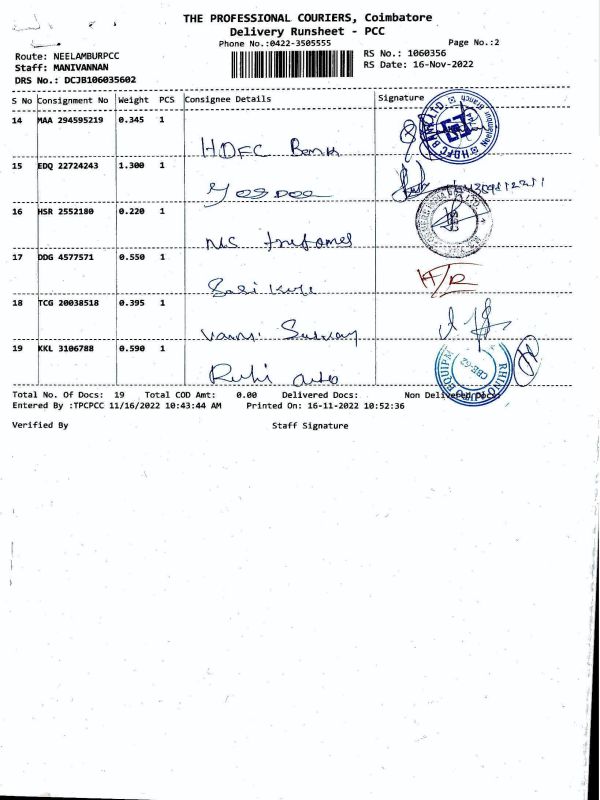 THE PROFESSIONAL COURIERS, Coimbatore
Delivery Runsheet - PCC
Phone No.:0422-3505555
Page No.:2
Route: NEELAMBURPCC
RS No.: 1060356
Staff: MANIVANNAN
RS Date: 16-Nov-2022
DRS No.: DCJB106035602
S No Consignment No Weight PCS Consignee Details Signature
14 MAA 294595219 0.345 1
HDFC Bank
15 EDQ 22724243 1.300 1
16 HSR 2552180 0.220 1
17 DDG 4577571 0.550 1
H/R
18 TCG 20038518 0.395 1
19 KKL 3106788 0.590 1
Total No. Of Docs: 19 Total COD Amt: 0.00 Delivered Docs: Non Delivered Docs:
Entered By :TPCPCC 11/16/2022 10:43:44 AM Printed On: 16-11-2022 10:52:36
Verified By Staff Signature